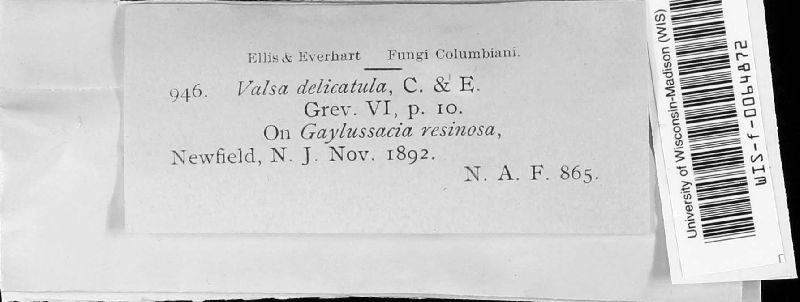 Ellis & Everhart Fungi Columbiani.
946. Valsa delicatula, C. & E.
Grev. VI, p. 10.
On Gaylussacia resinosa,
Newfield, N. J. Nov. 1892.
N. A. F. 865.
University of Wisconsin-Madison (WIS)
WIS-f-0064872